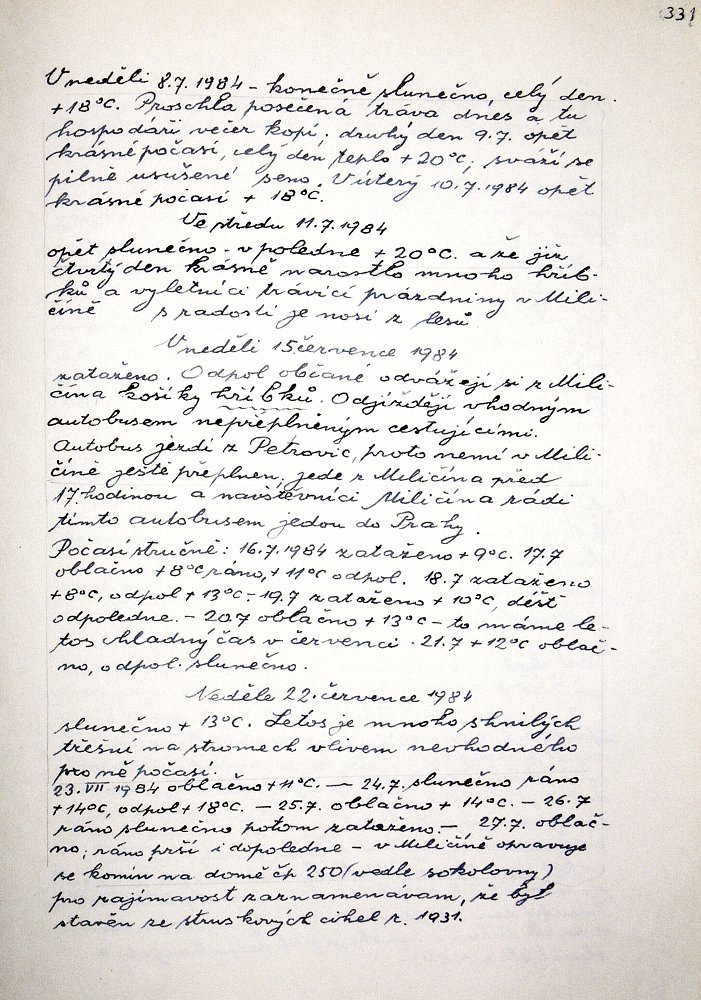 331
V neděli 8.7.1984 - konečně slunečno, celý den.
+18°C. Proschla posečená tráva dnes a tu
hospodáři večer kopí. druhý den 9.7. opět
krásné počasí, celý den teplo +20°C, sváží se
pilně usušené seno. V úterý 10.7.1984 opět
krásné počasí + 18°C.
Ve středu 11.7.1984
opět slunečno - v poledne + 20°C. a že již
čtvrtý den krásně narostlo mnoho hříb-
ků a vyletníci trávící prázdniny v Mili-
číně s radostí je nosí z lesů
V neděli 15července 1984
zataženo. Odpol občané odvážejí si z Mili-
čína košíky hříbků. Odjíždějí vhodným
autobusem nepřeplněným cestujícími.
Autobus jezdí z Petrovic, proto není v Mili-
číně ještě přeplnen, jede z Miličína před
17.hodinou a navštěvníci Miličína rádi
tímto autobusem jedou do Prahy.
Počasí stručně: 16.7.1984 zataženo +9°C. 17.7
oblačno +8°C ráno, + 11°C odpol. 18.7 zataženo
+8°C, odpol + 13°C - 19.7 zataženo + 10°C, déšť
odpoledne. - 20.7 oblačno + 13°C - to máme le-
tos chladný čas v červenci. 21.7 + 12°C oblač-
no, odpol. slunečno.
Neděle 22.července 1984
slunečno + 13°C. Letos je mnoho shnilých
třešní na stromech vlivem nevhodného
pro ně počasí.
23.VII 1984 oblačno +11°C. — 24.7. slunečno ráno
+14°C, odpol + 18°C. - 25.7. oblačno + 14°C. - 26.7
ráno slunečno potom zataženo. - 27.7. oblač-
no; ráno prší i dopoledne - v Miličíně opravuje
se komín na domě čp 250 (vedle sokolovny)
pro zajímavost zaznamenávám, že byl
stavěn ze struskových cihel r. 1931.